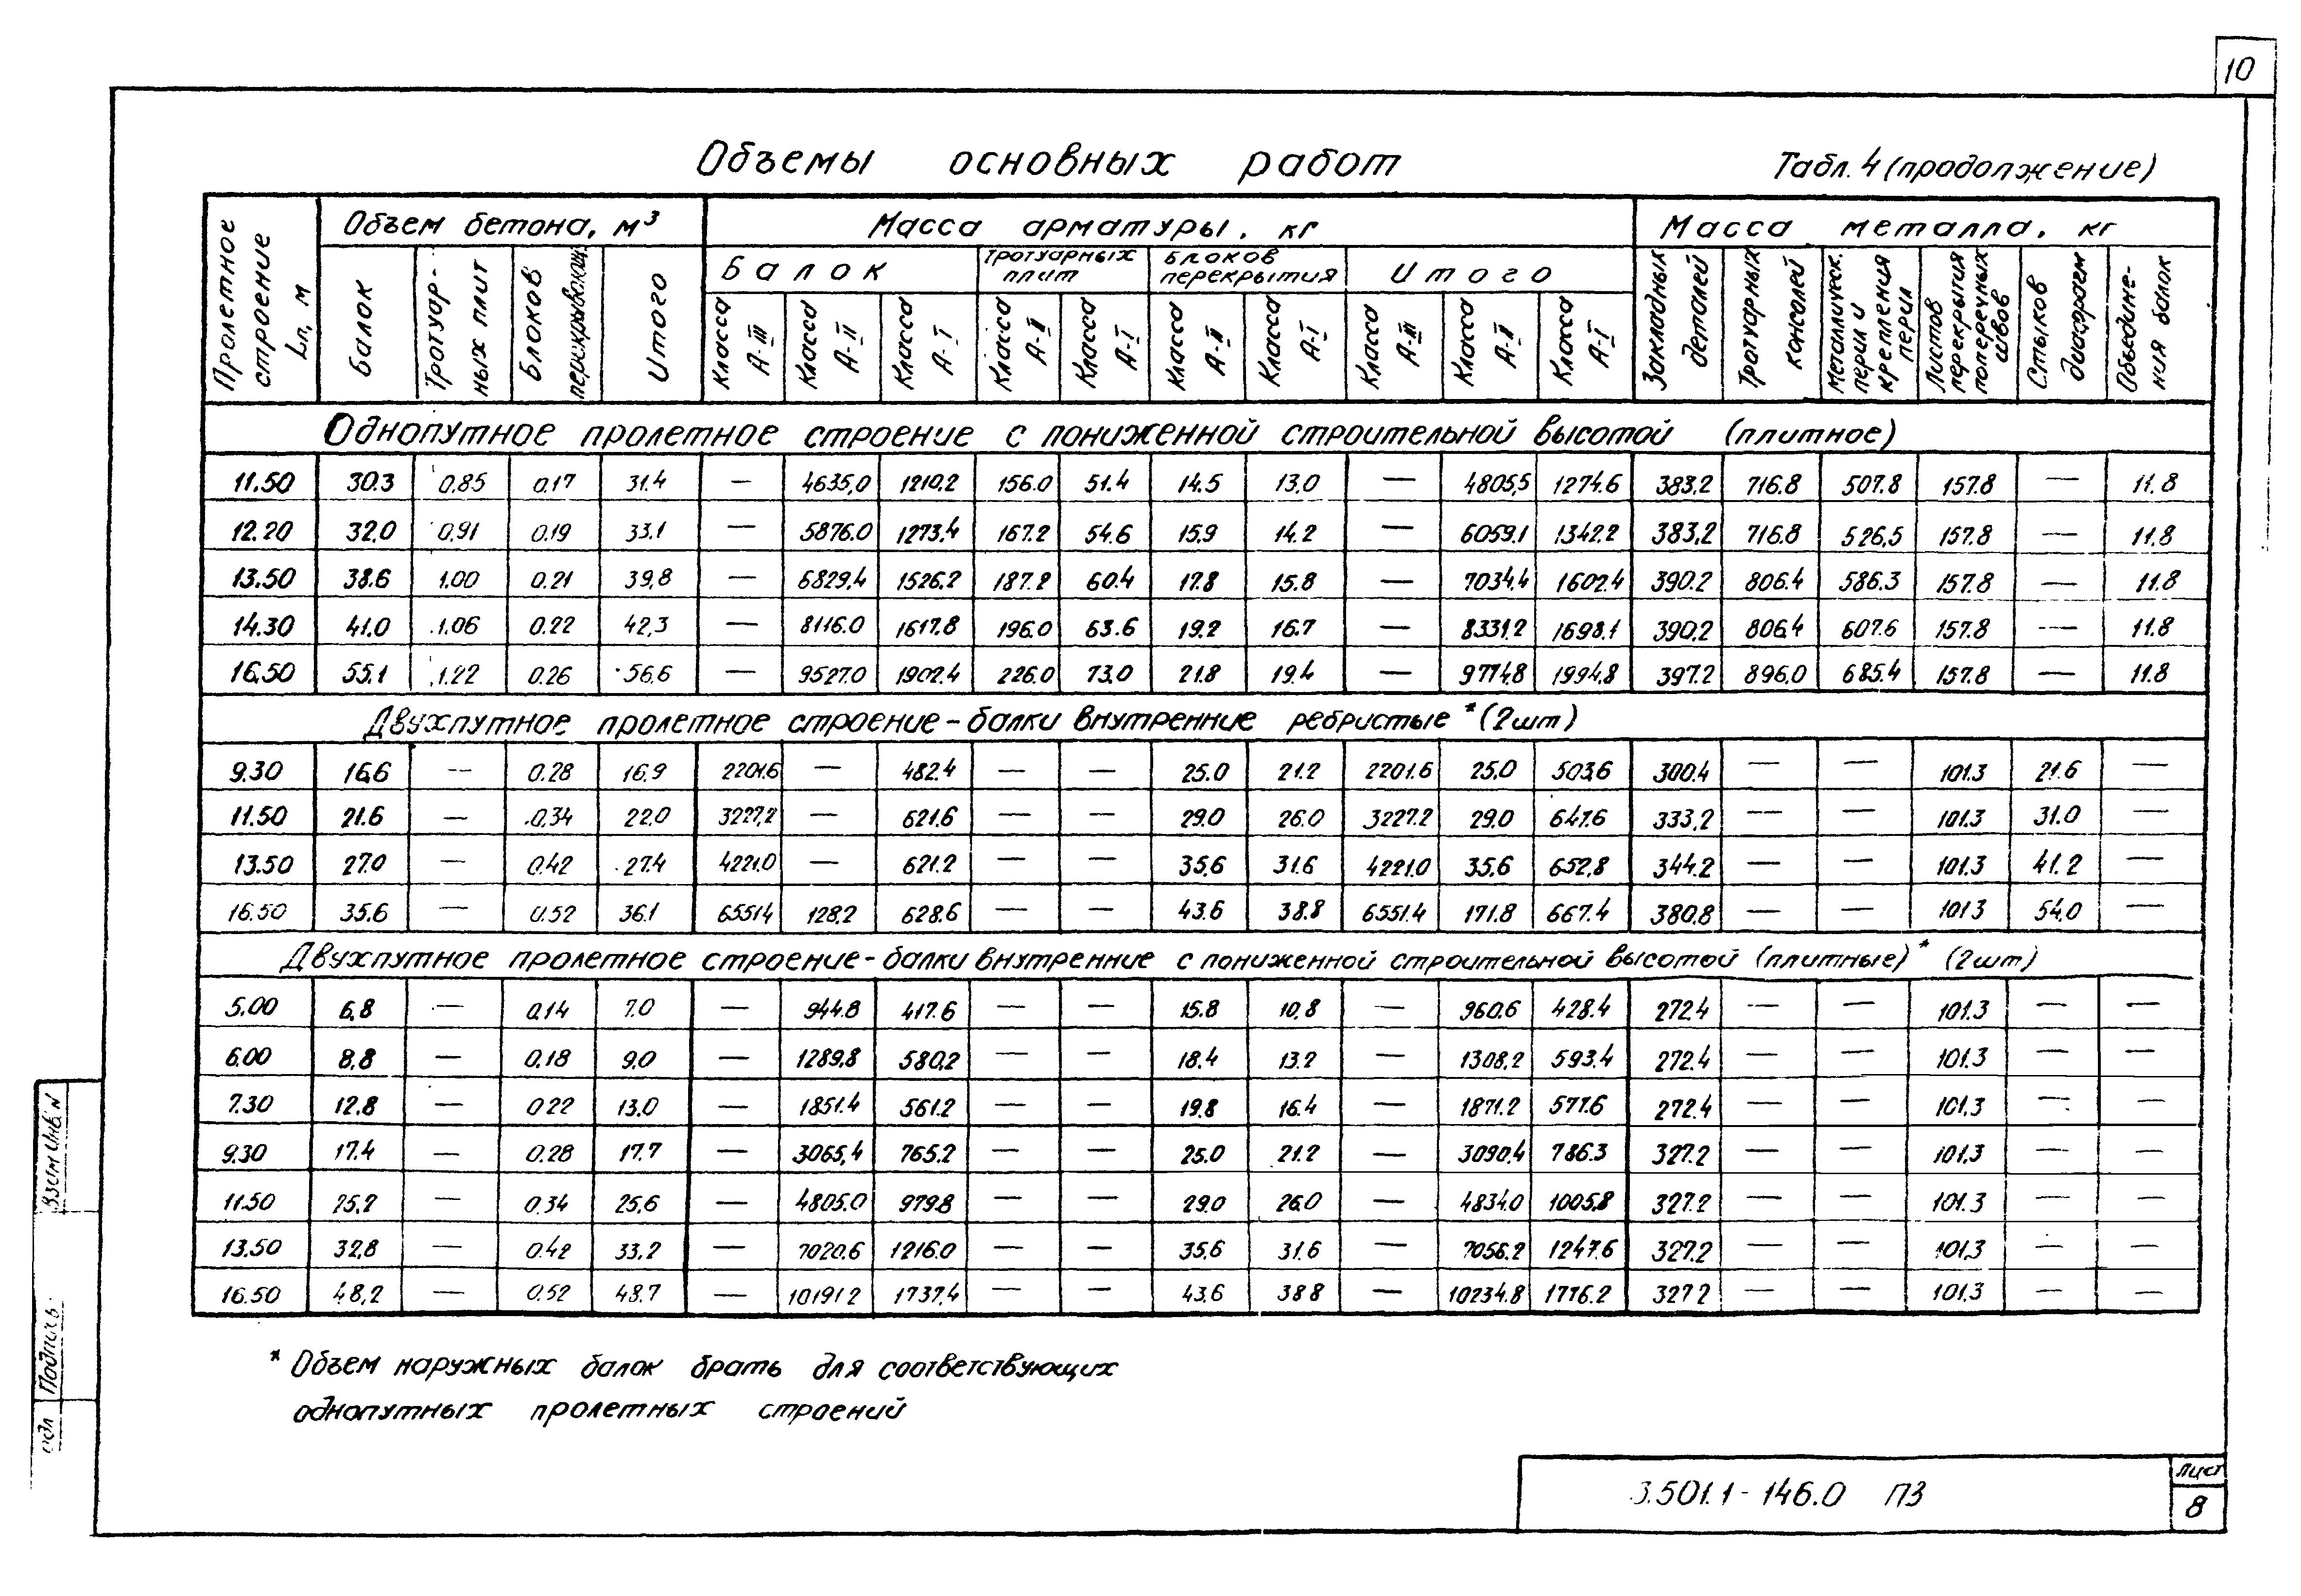 10
Объемы основных работ
Табл. 4 (продолжение)
Пролетное строение Lп, м
Объем бетона, м³
Масса арматуры, кг
Масса металла, кг
Балок
Тротуарных плит
Блоков
Итого
Балок
Тротуарных плит
Блоков перекрытия
Итого
Класса А-III
Класса А-II
Класса А-I
Класса А-II
Класса А-I
Класса А-II
Класса А-I
Класса А-III
Класса А-II
Класса А-I
Закладных деталей
Тротуарных консолей
Металлическ. перил и крепления перил
Листов перекрытия поперечных швов
Стыков диафрагм
Объединения балок
Однопутное пролетное строение с пониженной строительной высотой (плитное)
11.50 30.3 0.85 0.17 31.4 — 4635,0 1210.2 156.0 51.4 14.5 13,0 — 4805,5 1274.6 383.2 716.8 507.8 157.8 — 11.8
12.20 32.0 0,91 0.19 33.1 — 5876.0 1273,4 167.2 54.6 15.9 14.2 — 6059.1 1342.2 383,2 716.8 526,5 157.8 — 11.8
13.50 38.6 1.00 0.21 39,8 — 6829,4 1526.2 187.2 60.4 17.8 15.8 — 7034,4 1602.4 390.2 806.4 586.3 157.8 — 11.8
14.30 41.0 1.06 0.22 42,3 — 8116.0 1617.8 196.0 63.6 19.2 16.7 — 8331.2 1698.1 390.2 806,4 607.6 157.8 — 11.8
16.50 55.1 1.22 0.26 56,6 — 9527.0 1902.4 226.0 73,0 21.8 19.4 — 9774,8 1994,8 397.2 896,0 685.4 157.8 — 11.8
Двухпутное пролетное строение - балки внутренние ребристые * (2шт)
9.30 16,6 — 0.28 16,9 2201.6 — 482.4 — — 25.0 21.2 2201.6 25,0 503,6 300.4 — — 101.3 21.6 —
11.50 21.6 — 0.34 22,0 3227,2 — 621.6 — — 29.0 26.0 3227.2 29.0 647.6 333,2 — — 101.3 31.0 —
13.50 27.0 — 0.42 27.4 4221.0 — 621.2 — — 35,6 31.6 4221.0 35.6 652,8 344.2 — — 101.3 41.2 —
16.50 35.6 — 0.52 36.1 6551.4 128.2 628.6 — — 43.6 38.8 6551.4 171.8 667.4 380,8 — — 101.3 54,0 —
Двухпутное пролетное строение - балки внутренние с пониженной строительной высотой (плитные) * (2шт)
5.00 6,8 — 0.14 7.0 — 944.8 417.6 — — 15.8 10,8 — 960.6 428.4 272.4 — — 101.3 — —
6.00 8,8 — 0.18 9.0 — 1289,8 580,2 — — 18.4 13.2 — 1308,2 593.4 272.4 — — 101.3 — —
7.30 12.8 — 0.22 13.0 — 1851.4 561.2 — — 19.8 16.4 — 1871.2 577.6 272.4 — — 101.3 — —
9.30 17.4 — 0.28 17.7 — 3065,4 765.2 — — 25.0 21.2 — 3090,4 786.3 327.2 — — 101.3 — —
11.50 25,2 — 0.34 25.6 — 4805.0 979.8 — — 29.0 26.0 — 4834.0 1005,8 327.2 — — 101.3 — —
13.50 32,8 — 0.42 33,2 — 7020.6 1216.0 — — 35,6 31.6 — 7056.2 1247.6 327.2 — — 101.3 — —
16.50 48,2 — 0.52 48.7 — 10191.2 1737,4 — — 43.6 38.8 — 10234.8 1776.2 327.2 — — 101.3 — —
* Объем наружных балок брать для соответствующих
однопутных пролетных строений
Взам Инв. N
Подпись
3.501.1-146.0 ПЗ
Лист
8